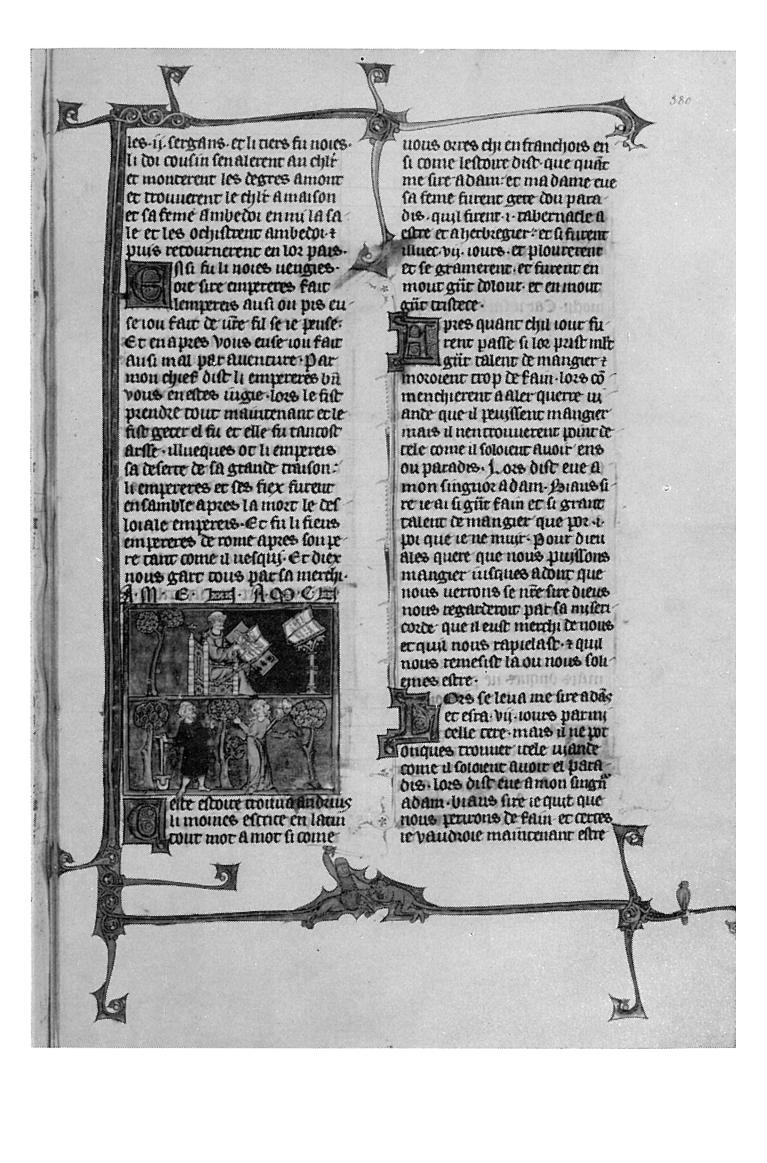 380
les .ij. sergans. et li tiers fu noies.
li doi cousin senalerent au chlr
et monterent les degres amont
et trouuerent le chlr a maison
et sa feme ambedoi en mi la sa
le et les ochistrent ambedoi. ⁊
puis retournerent en lor pais.
Ensi fu li noies uengies.
ore sire empereres fait
lempereis ausi ou pis eu
se iou fait de urē fil se ie peuse.
Et en apres vous euse iou fait
ausi mal par auenture. Par
mon chief dist li empereres bn̄
vous en estes iugie. lors le fist
prendre tout maintenant et le
fist geter el fu et elle fu tantost
arsse. illueques ot li empereis
sa deserte de sa grande traison.
li empereres et ses fiex furent
ensamble apres la mort le des
loiale empereis. Et fu li fieus
empereres de rome apres son pe
re tant come il uesqui. Et diex
nous gart tous par sa merchi.
A M E N A M E N
Ceste estoire trouua andrius
li moines escrite en latin
tout mot a mot si come
uous orres chi en franchois en
si come lestoire dist. que quāt
me sire adam. et ma dame eue
sa feme furent gete dou para
dis. quil firent .i. tabernacle a
estre et a herbregier. et si furent
illuec .vij. iours. et plourerent
et se gramerent. et furent en
mout gūt dolour. et en mout
gūt tristece.
Apres quant chil iour fu
rent passe si lor prist mlt
gūt talent de mangier ⁊
moroient trop de fain. lors cō
menchierent a aler querre ui
ande que il peuissent mangier
mais il nen trouuerent point de
tele come il soloient auoir ens
ou paradis. Lors dist eue a
mon singnor adam. Biaus si
re ie ai si gūt fain et si grant
talent de mangier que por .i.
poi que ie ne muir. Pour dieu
ales quere que nous puissons
mangier iusques adont que
nous uerrons se nrē sire dieus
nous regarderoit par sa miseri
corde. que il eust merchi de nous
et quil nous rapielast. ⁊ quil
nous remesist la ou nous soli
emes estre.
Lors se leua me sire adās
et esra .vij. iours parmi
celle tere. mais il ne pot
onques trouuer itele uiande
come il soloient auoir el para
dis. lors dist eue a mon singn̄r
adam. biaus sire ie quit que
nous perirons de fain et certes
ie vaudroie maintenant estre